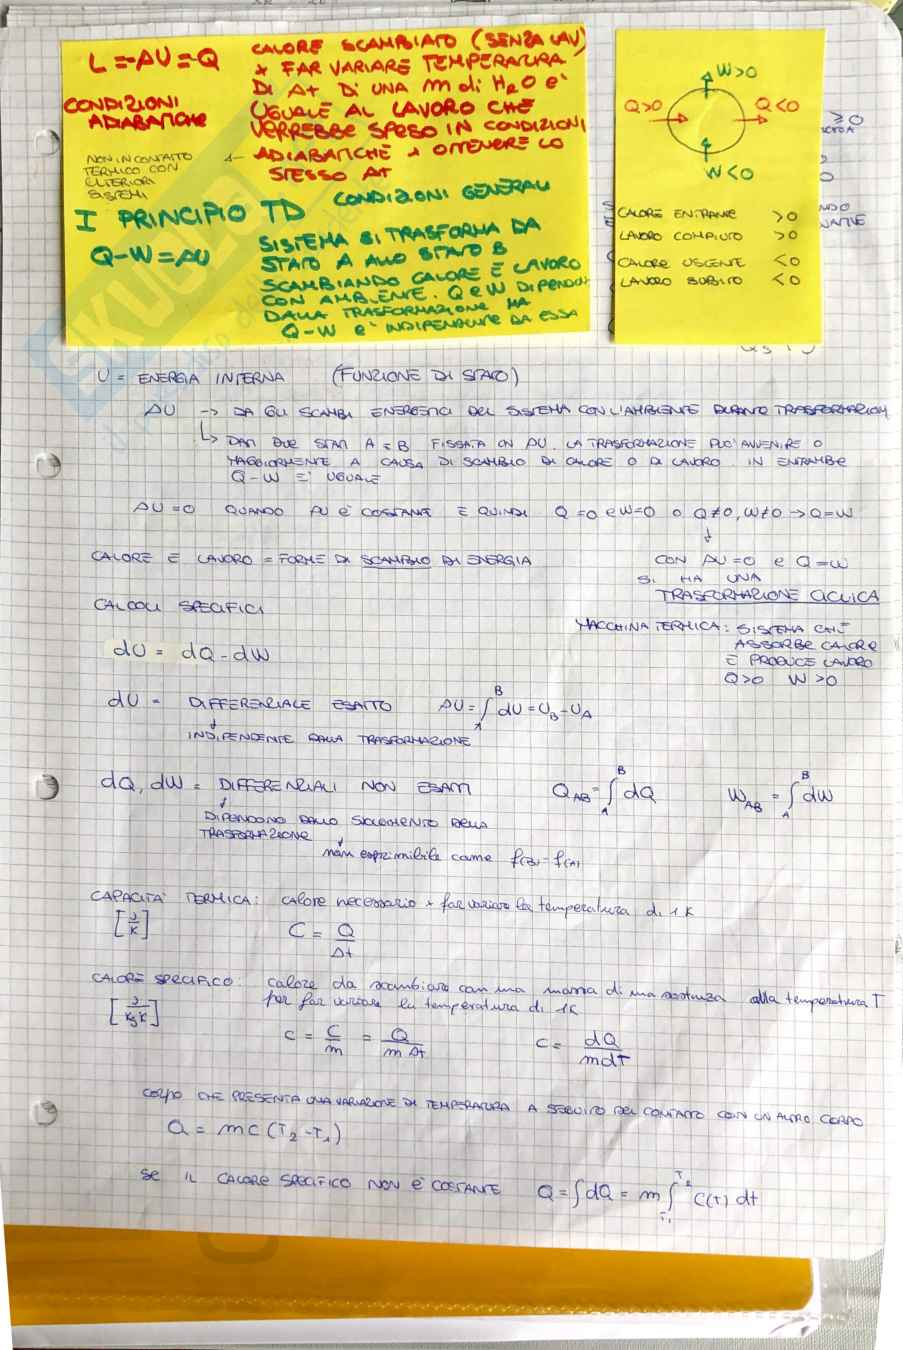 L=-ΔU=Q
CONDIZIONI
ADIABATICHE
CALORE SCAMBIATO (SENZA LAV)
x FAR VARIARE TEMPERATURA
DI Δt DI UNA m di H2O e'
UGUALE AL LAVORO CHE
VERREBBE SPESO IN CONDIZIONI
ADIABATICHE x OTTENERE LO
STESSO Δt
NON IN CONTATTO
TERMICO CON
ULTERIORI
SISTEMI
I PRINCIPIO TD CONDIZIONI GENERALI
Q-W=ΔU
SISTEMA SI TRASFORMA DA
STATO A ALLO STATO B
SCAMBIANDO CALORE E LAVORO
CON AMBIENTE. Q E W DIPENDON
DALLA TRASFORMAZIONE MA
Q-W e' INDIPENDENTE DA ESSA
W>0
Q>0
Q<0
W<0
CALORE ENTRANTE >0
LAVORO COMPIUTO >0
CALORE USCENTE <0
LAVORO SUBITO <0
U = ENERGIA INTERNA (FUNZIONE DI STATO)
ΔU -> DA GLI SCAMBI ENERGETICI DEL SISTEMA CON L'AMBIENTE DURANTE TRASFORMAZIONI
DATI DUE STATI A e B FISSATA UN ΔU. LA TRASFORMAZIONE PUO' AVVENIRE O
MAGGIORMENTE A CAUSA DI SCAMBIO DI CALORE O DI LAVORO IN ENTRAMBE
Q-W E' UGUALE
ΔU=0 QUANDO ΔU e' COSTANTE E QUINDI Q=0 e W=0 o Q≠0, W≠0 -> Q=W
CON ΔU=0 e Q=W
SI HA UNA
TRASFORMAZIONE CICLICA
CALORE E LAVORO = FORME DI SCAMBIO DI ENERGIA
CALCOLI SPECIFICI
MACCHINA TERMICA: SISTEMA CHE
ASSORBE CALORE
E PRODUCE LAVORO
Q>0 W>0
dU = dQ - dW
dU = DIFFERENZIALE ESATTO ΔU = ∫_A^B dU = U_B - U_A
INDIPENDENTE DALLA TRASFORMAZIONE
dQ, dW = DIFFERENZIALI NON ESATTI Q_AB = ∫_A^B dQ W_AB = ∫_A^B dW
DIPENDONO DALLO SVOLGIMENTO DELLA
TRASFORMAZIONE
non esprimibile come f(B)-f(A)
CAPACITA' TERMICA: calore necessario x far variare la temperatura di 1K
[J/K] C = Q/Δt
CALORE SPECIFICO: calore da scambiare con una massa di una sostanza alla temperatura T
per far variare la temperatura di 1K
[J/kgK] c = C/m = Q/mΔt c = dQ/mdT
CORPO CHE PRESENTA UNA VARIAZIONE DI TEMPERATURA A SEGUITO DEL CONTATTO CON UN ALTRO CORPO
Q = mc(T2-T1)
SE IL CALORE SPECIFICO NON e' COSTANTE Q = ∫dQ = m∫_T1^T2 c(T) dt